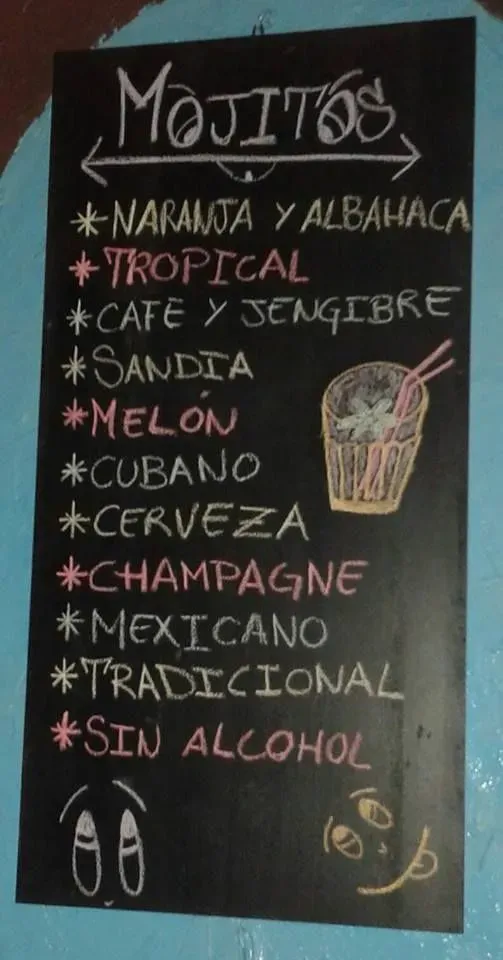 MOJITOS
* NARANJA Y ALBAHACA
* TROPICAL
* CAFE Y JENGIBRE
* SANDIA
* MELÓN
* CUBANO
* CERVEZA
* CHAMPAGNE
* MEXICANO
* TRADICIONAL
* SIN ALCOHOL